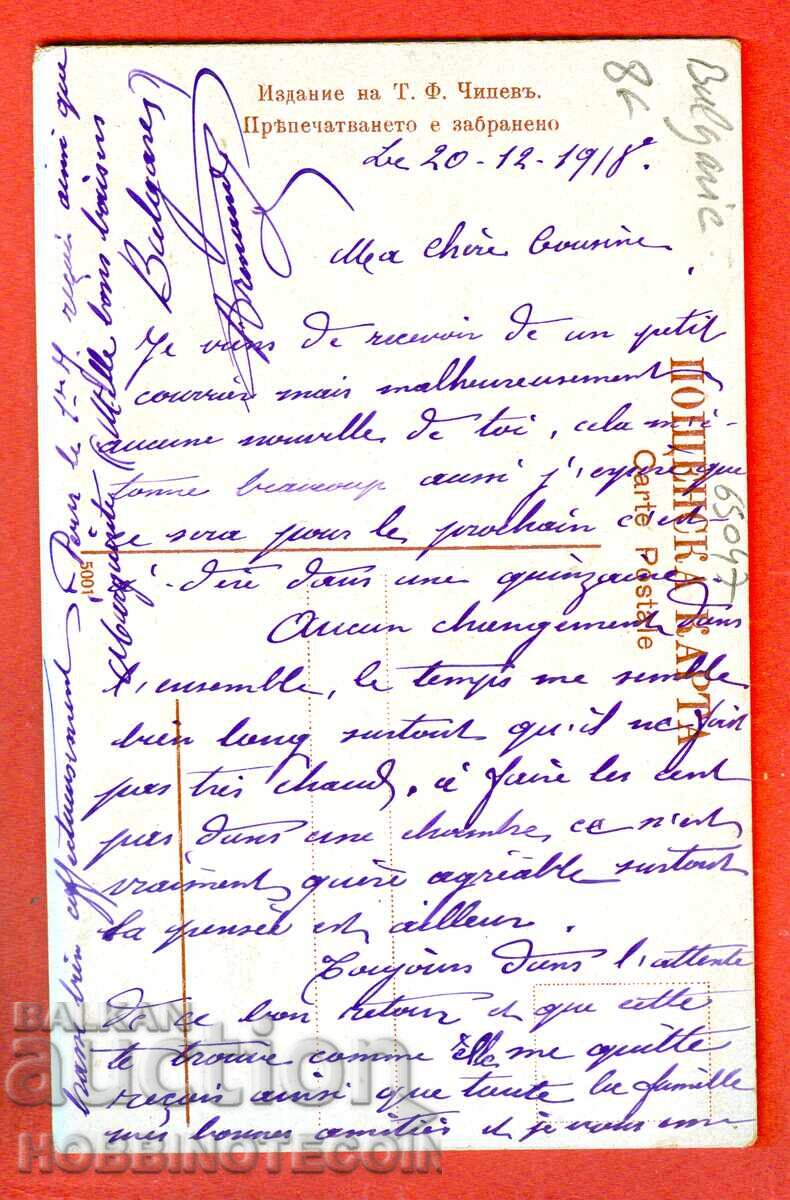 Издание на Т. Ф. Чипевъ.
Прѣпечатването е забранено
Bulgarie
8L
65047
ПОЩЕНСКА КАРТА
Carte Postale
5001
Le 20-12-1918.
Ma chère Cousine
Je viens de recevoir de un petit
courrier mais malheureusement
aucune nouvelle de toi, cela m'é-
tonne beaucoup aussi j'espère que
ce sera pour le prochain c'est-
à-dire dans une quinzaine
Aucun changement dans
l'ensemble, le temps me semble
bien long surtout qu'il ne fait
pas très chaud, à faire les cent
pas dans une chambre, ce n'est
vraiment guère agréable surtout
la pensée est ailleur.
Toujours dans l'attente
de ce bon retour et que cette
te trouve comme Elle me quitte
reçois ainsi que toute la famille
mes bonnes amitiés et je vous em-
brasse bien affectueusement
Pour le 1er reçois ainsi que
Marguerite Mille bons baisers
Bulgares
BALKAN
auction
HOBBINOTECOIN